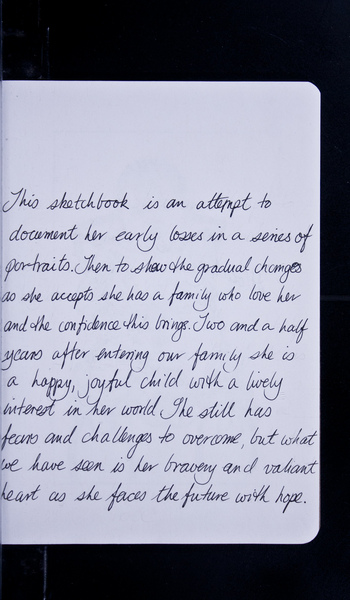 This sketchbook is an attempt to
document her early losses in a series of
portraits. Then to show the gradual changes
as she accepts she has a family who love her
and the confidence this brings. Two and a half
years after entering our family she is
a happy, joyful child with a lively
interest in her world. She still has
fears and challenges to overcome, but what
we have seen is her bravery and valiant
heart as she faces the future with hope.